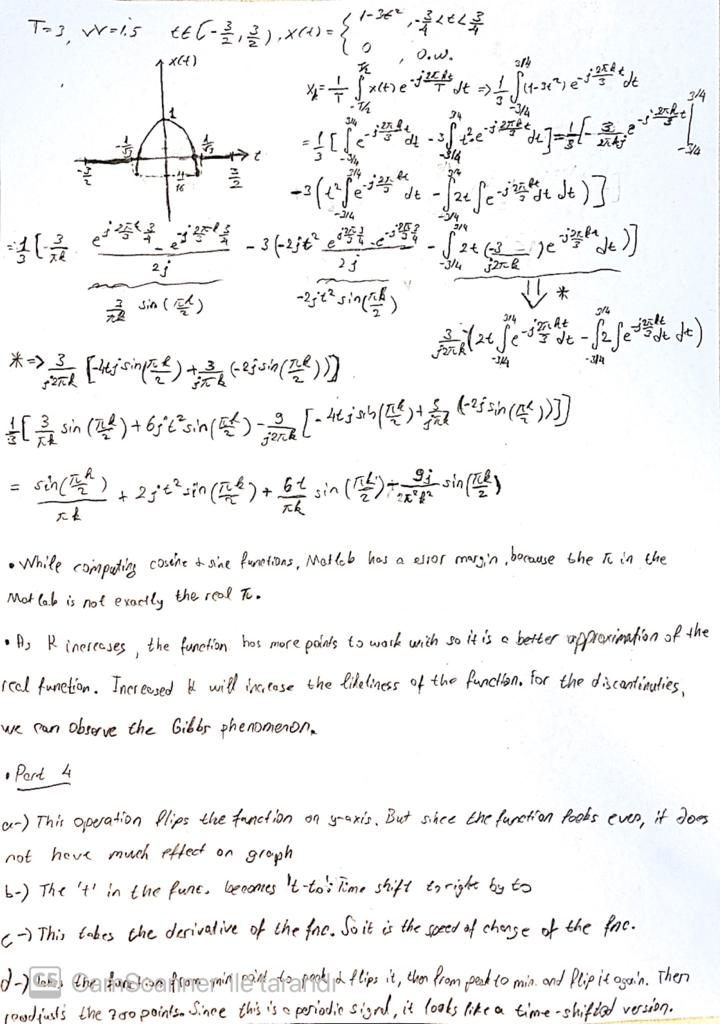 T=3, W=1.5 t∈(-3/2, 3/2), x(t) = { 1-3t², -3/4<t<3/4
0 , o.w.
x(t)
1
-1/√3 1/√3 t
-3/2 11/16 3/2
X_k = 1/T ∫_{-T/2}^{T/2} x(t) e^{-j 2πkt/T} dt => 1/3 ∫_{-3/4}^{3/4} (1-3t²) e^{-j 2πk/3 t} dt
= 1/3 [ ∫_{-3/4}^{3/4} e^{-j 2πk/3 t} dt - 3 ∫_{-3/4}^{3/4} t² e^{-j 2πk/3 t} dt ] = 1/3 [ - 3/2πkj e^{-j 2πk/3 t} |_{-3/4}^{3/4}
-3 ( t² ∫_{-3/4}^{3/4} e^{-j 2πkt/3} dt - ∫_{-3/4}^{3/4} 2t ∫ e^{-j 2πkt/3} dt dt ) ]
= 1/3 [ - 3/πk (e^{j 2πk/3 3/4} - e^{-j 2πk/3 3/4})/2j - 3 ( -2jt² (e^{j 2π/3 3/4} - e^{-j 2π/3 3/4})/2j - ∫_{-3/4}^{3/4} 2t (-3/j2πk) e^{-j 2πkt/3} dt ) ]
3/πk sin(πk/2) -2jt² sin(πk/2) ⇓ *
3/j2πk (2t ∫_{-3/4}^{3/4} e^{-j 2πkt/3} dt - ∫_{-3/4}^{3/4} 2 ∫ e^{-j 2πkt/3} dt dt)
* => 3/j2πk [ -4tj sin(πk/2) + 3/jπk (-2j sin(πk/2)) ]
1/3 [ 3/πk sin(πk/2) + 6jt² sin(πk/2) - 9/j2πk [ -4tj sin(πk/2) + 3/jπk (-2j sin(πk/2)) ] ]
= sin(πk/2)/πk + 2jt² sin(πk/2) + 6t/πk sin(πk/2) + 9j/2π²k² sin(πk/2)
• While computing cosine & sine functions, Matlab has a error margin, because the π in the
Matlab is not exactly the real π.
• As K increases, the function has more points to work with so it is a better approximation of the
real function. Increased K will increase the likeliness of the function. For the discontinuties,
we can observe the Gibbs phenomenon.
• Part 4
a-) This operation flips the function on y-axis. But since the function looks even, it does
not have much effect on graph
b-) The 't' in the func. becomes 't-to': Time shift to right by to
c-) This takes the derivative of the fnc. So it is the speed of change of the fnc.
d-) Takes the function from min point to peak & flips it, then from peak to min. and flip it again. Then
readjusts the zero points. Since this is a periodic signal, it looks like a time-shifted version.
CS CamScanner ile tarandı